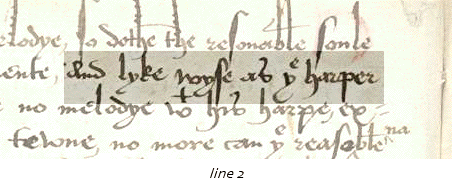 melodye, so dothe the resonable soule
mente, and lyke wyse as yͤ harper
no melodye wͭ his harpe, ex-
tewne, no more can yͤ reasable na
line 2